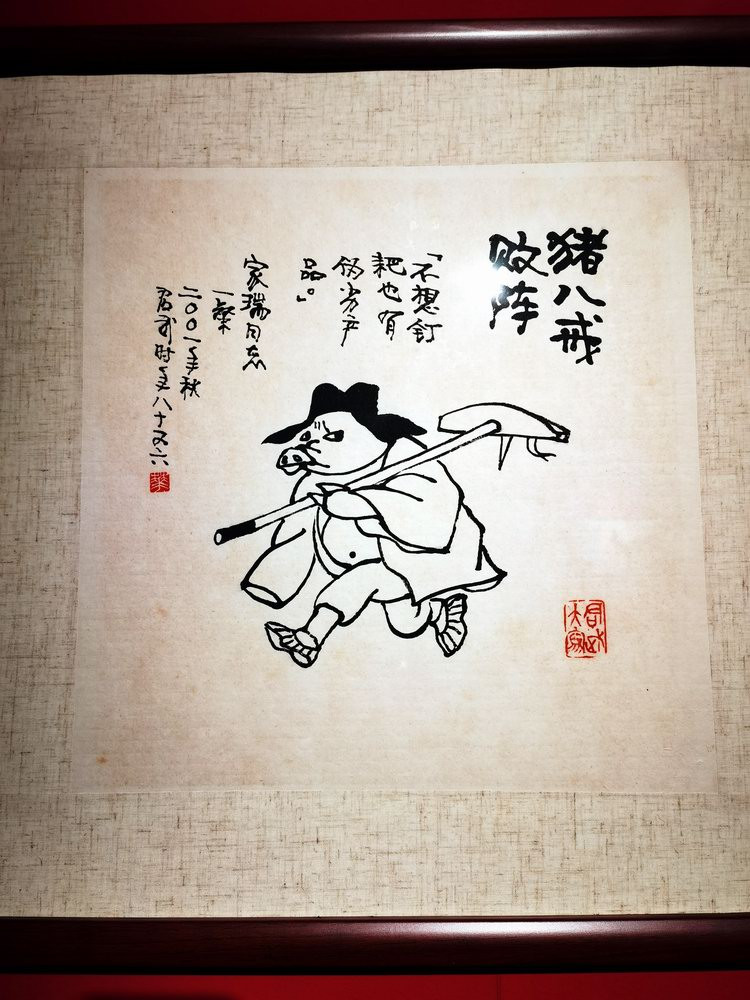 猪八戒
败阵
「不想钉
耙也有
伪劣产
品。」
家瑞同志
一粲
二〇〇一年秋
君武时年八十又六
華